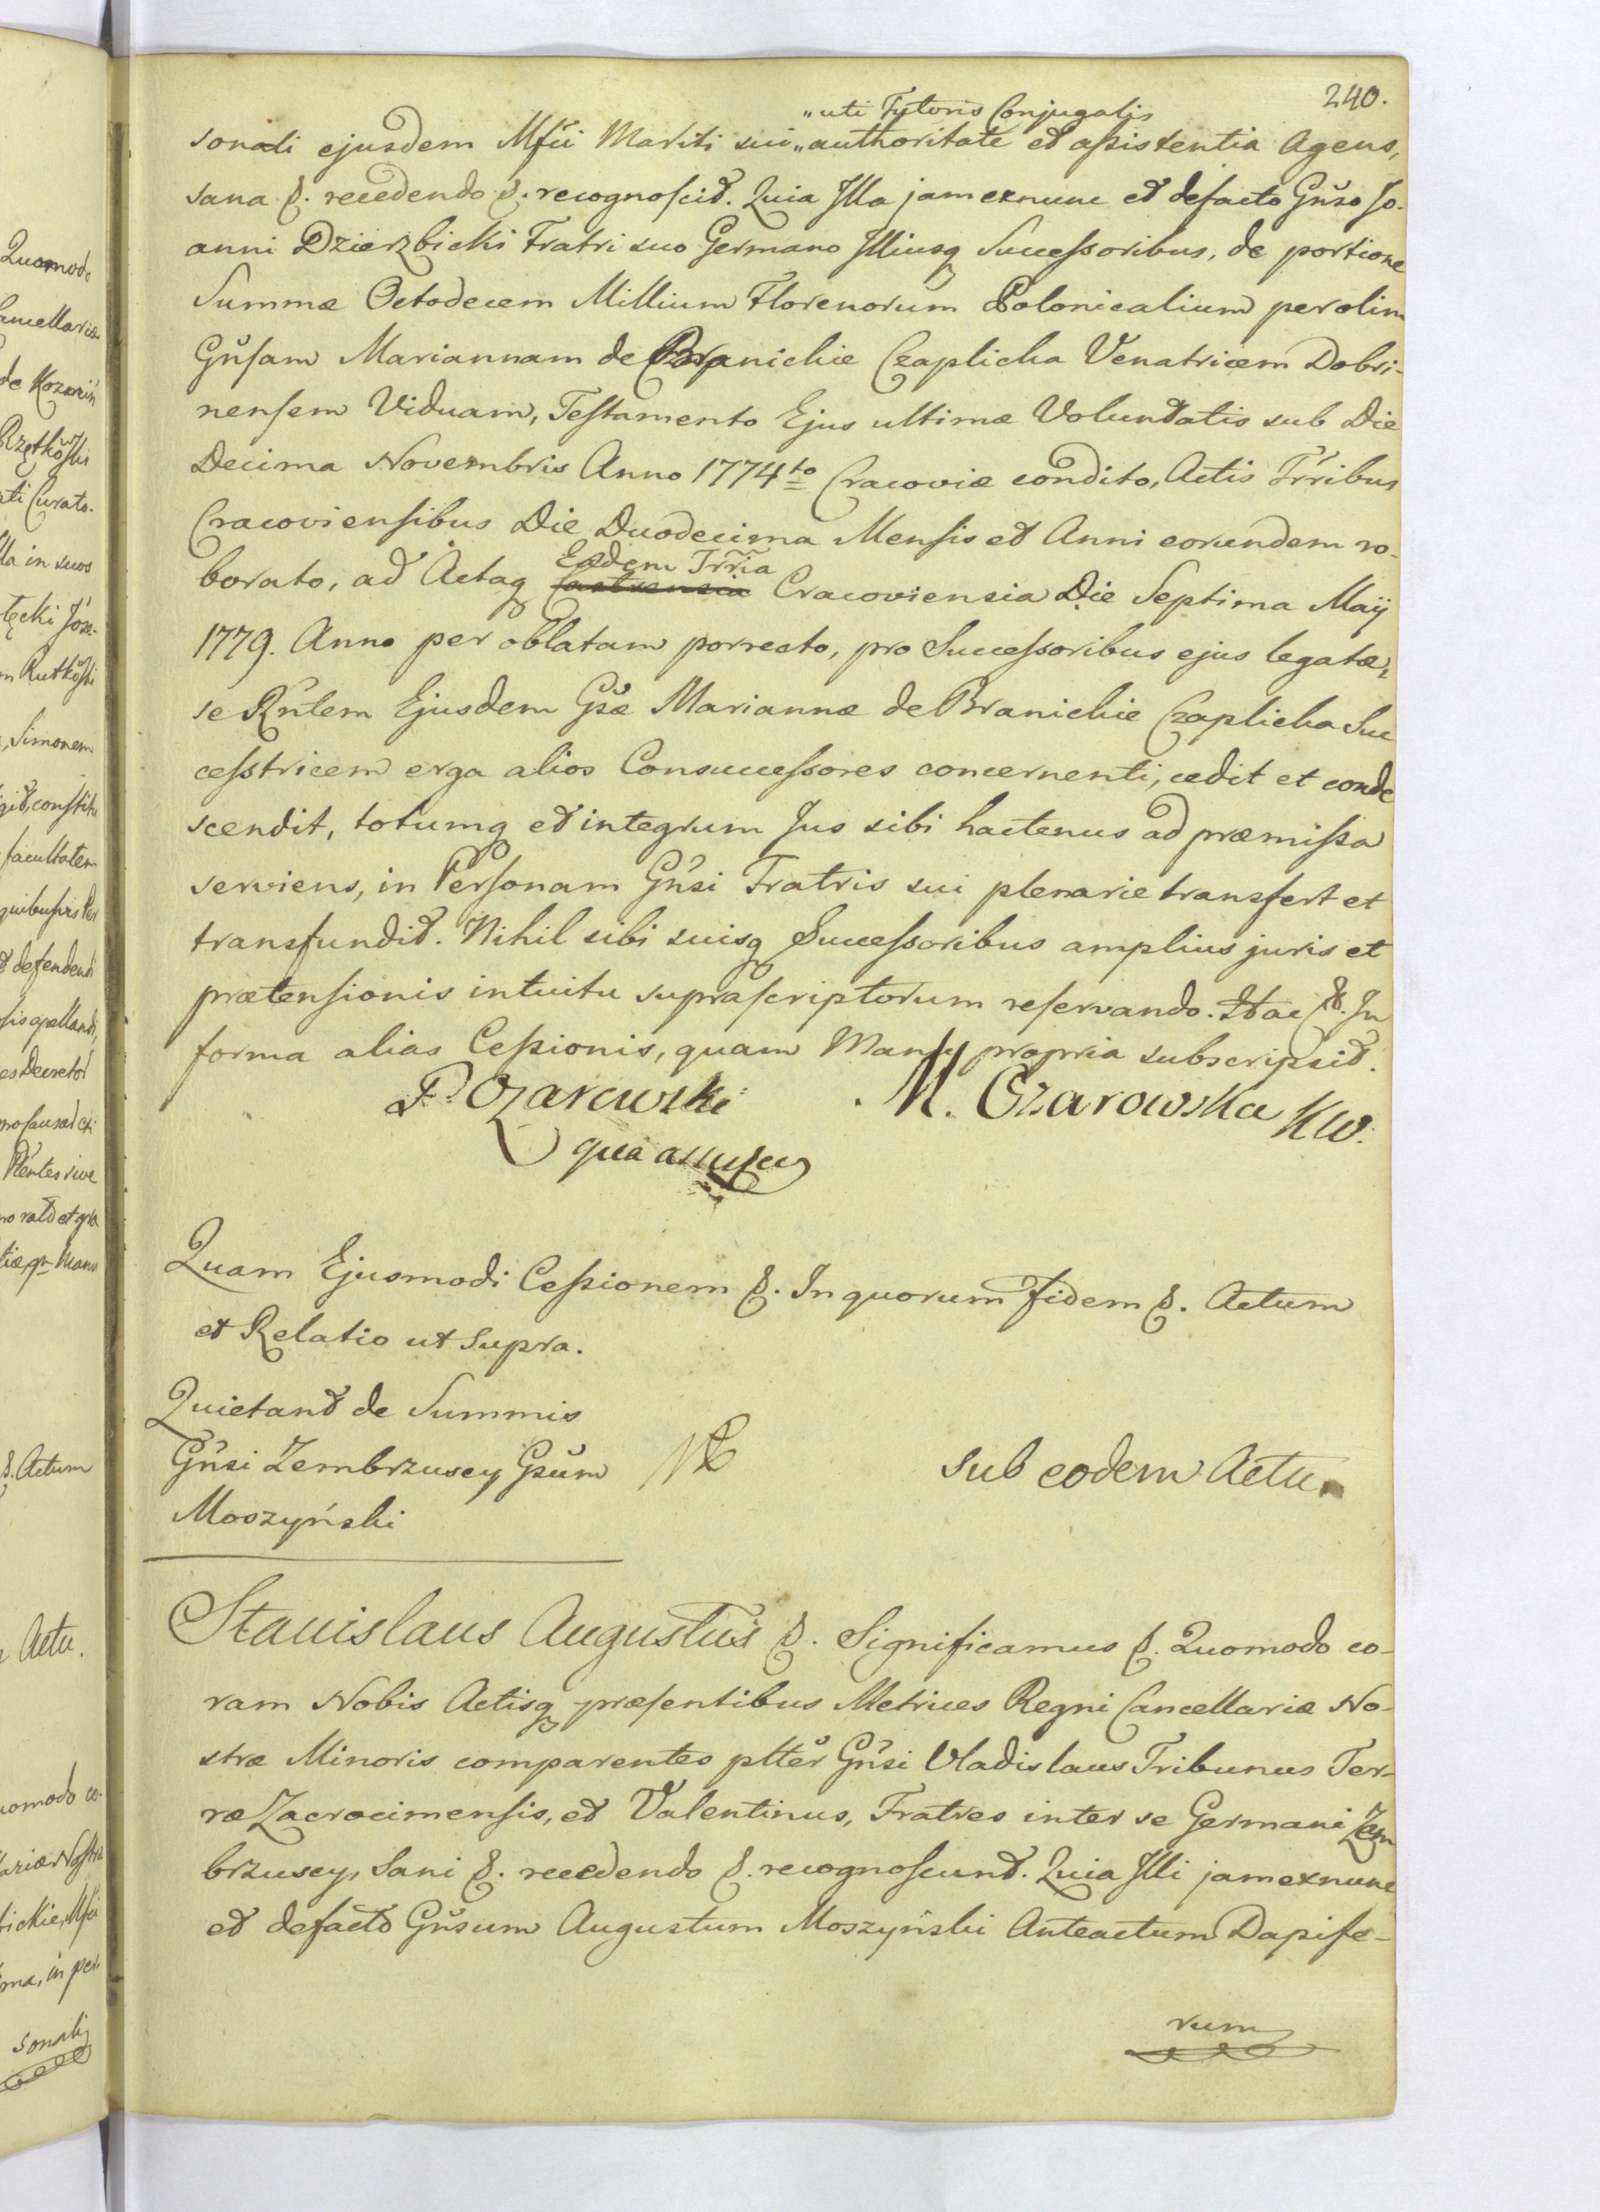 240.
„uti Tutoris Conjugalis
sonali ejusdem Mfci Mariti sui „authoritate et assistentia Agens,
sana &. recedendo &. recognoscit. Quia Illa jam exnunc et defacto Gnso Jo-
anni Dzierzbicki Fratri suo Germano Illiusq Successoribus, de portione
Summæ Octodecem Millium Florenorum Polonicalium per olim
Gnsam Mariannam de Branickie Czaplicka Venatricem Dobri-
nensem Viduam, Testamento Ejus ultimæ Voluntatis sub Die
Decima Novembris Anno 1774to Cracoviæ condito, Actis Trribus
Cracoviensibus Die Duodecima Mensis et Anni eorundem ro-
Eadem Trria
borato, ad Actaq Castrensia Cracoviensia Die Septima Maij
1779. Anno per oblatam porrecto, pro Successoribus ejus legatæ,
se Rntem Ejusdem Gsæ Mariannæ de Branickie Czaplicka Suc
cesstricem erga alios Consuccessores concernenti, cedit et conde
scendit, totumq et integrum Jus sibi hactenus ad præmissa
serviens, in Personam Gnsi Fratris sui plenarie transfert et
transfundit. Nihil sibi suisq Successoribus amplius juris et
prætensionis intuitu suprascriptorum reservando. Hac &. In
forma alias Cessionis, quam Manu propria subscripsit.
F. Ozarowski M. Ozarowska KW.
qua assistens
Quam Ejusmodi Cessionem &. In quorum Fidem &. Actum
et Relatio ut supra.
Quietant de Summis
Gnsi Zembrzuscy Gsum
sub eodem Actu.
Moszyński
Stanislaus Augustus &. Significamus &. Quomodo co-
ram Nobis Actisq præsentibus Metrices Regni Cancellariæ No-
stræ Minoris comparentes pltter Gnsi Vladislaus Tribunus Ter-
ræ Zacrocimensis, et Valentinus, Fratres inter se Germani Zem
brzuscy, Sani &. recedendo &. recognoscunt. Quia Illi jam exnunc
et defacto Gnsum Augustum Moszyński Anteactum Dapife-
rum
Quomodo
Cancellariæ
de Kozmin
ati Curato-
lla in suos
Simonem
facultatem
et defendendi
&. Actum
Actu.
uomodo co-
ma, in per
sonali